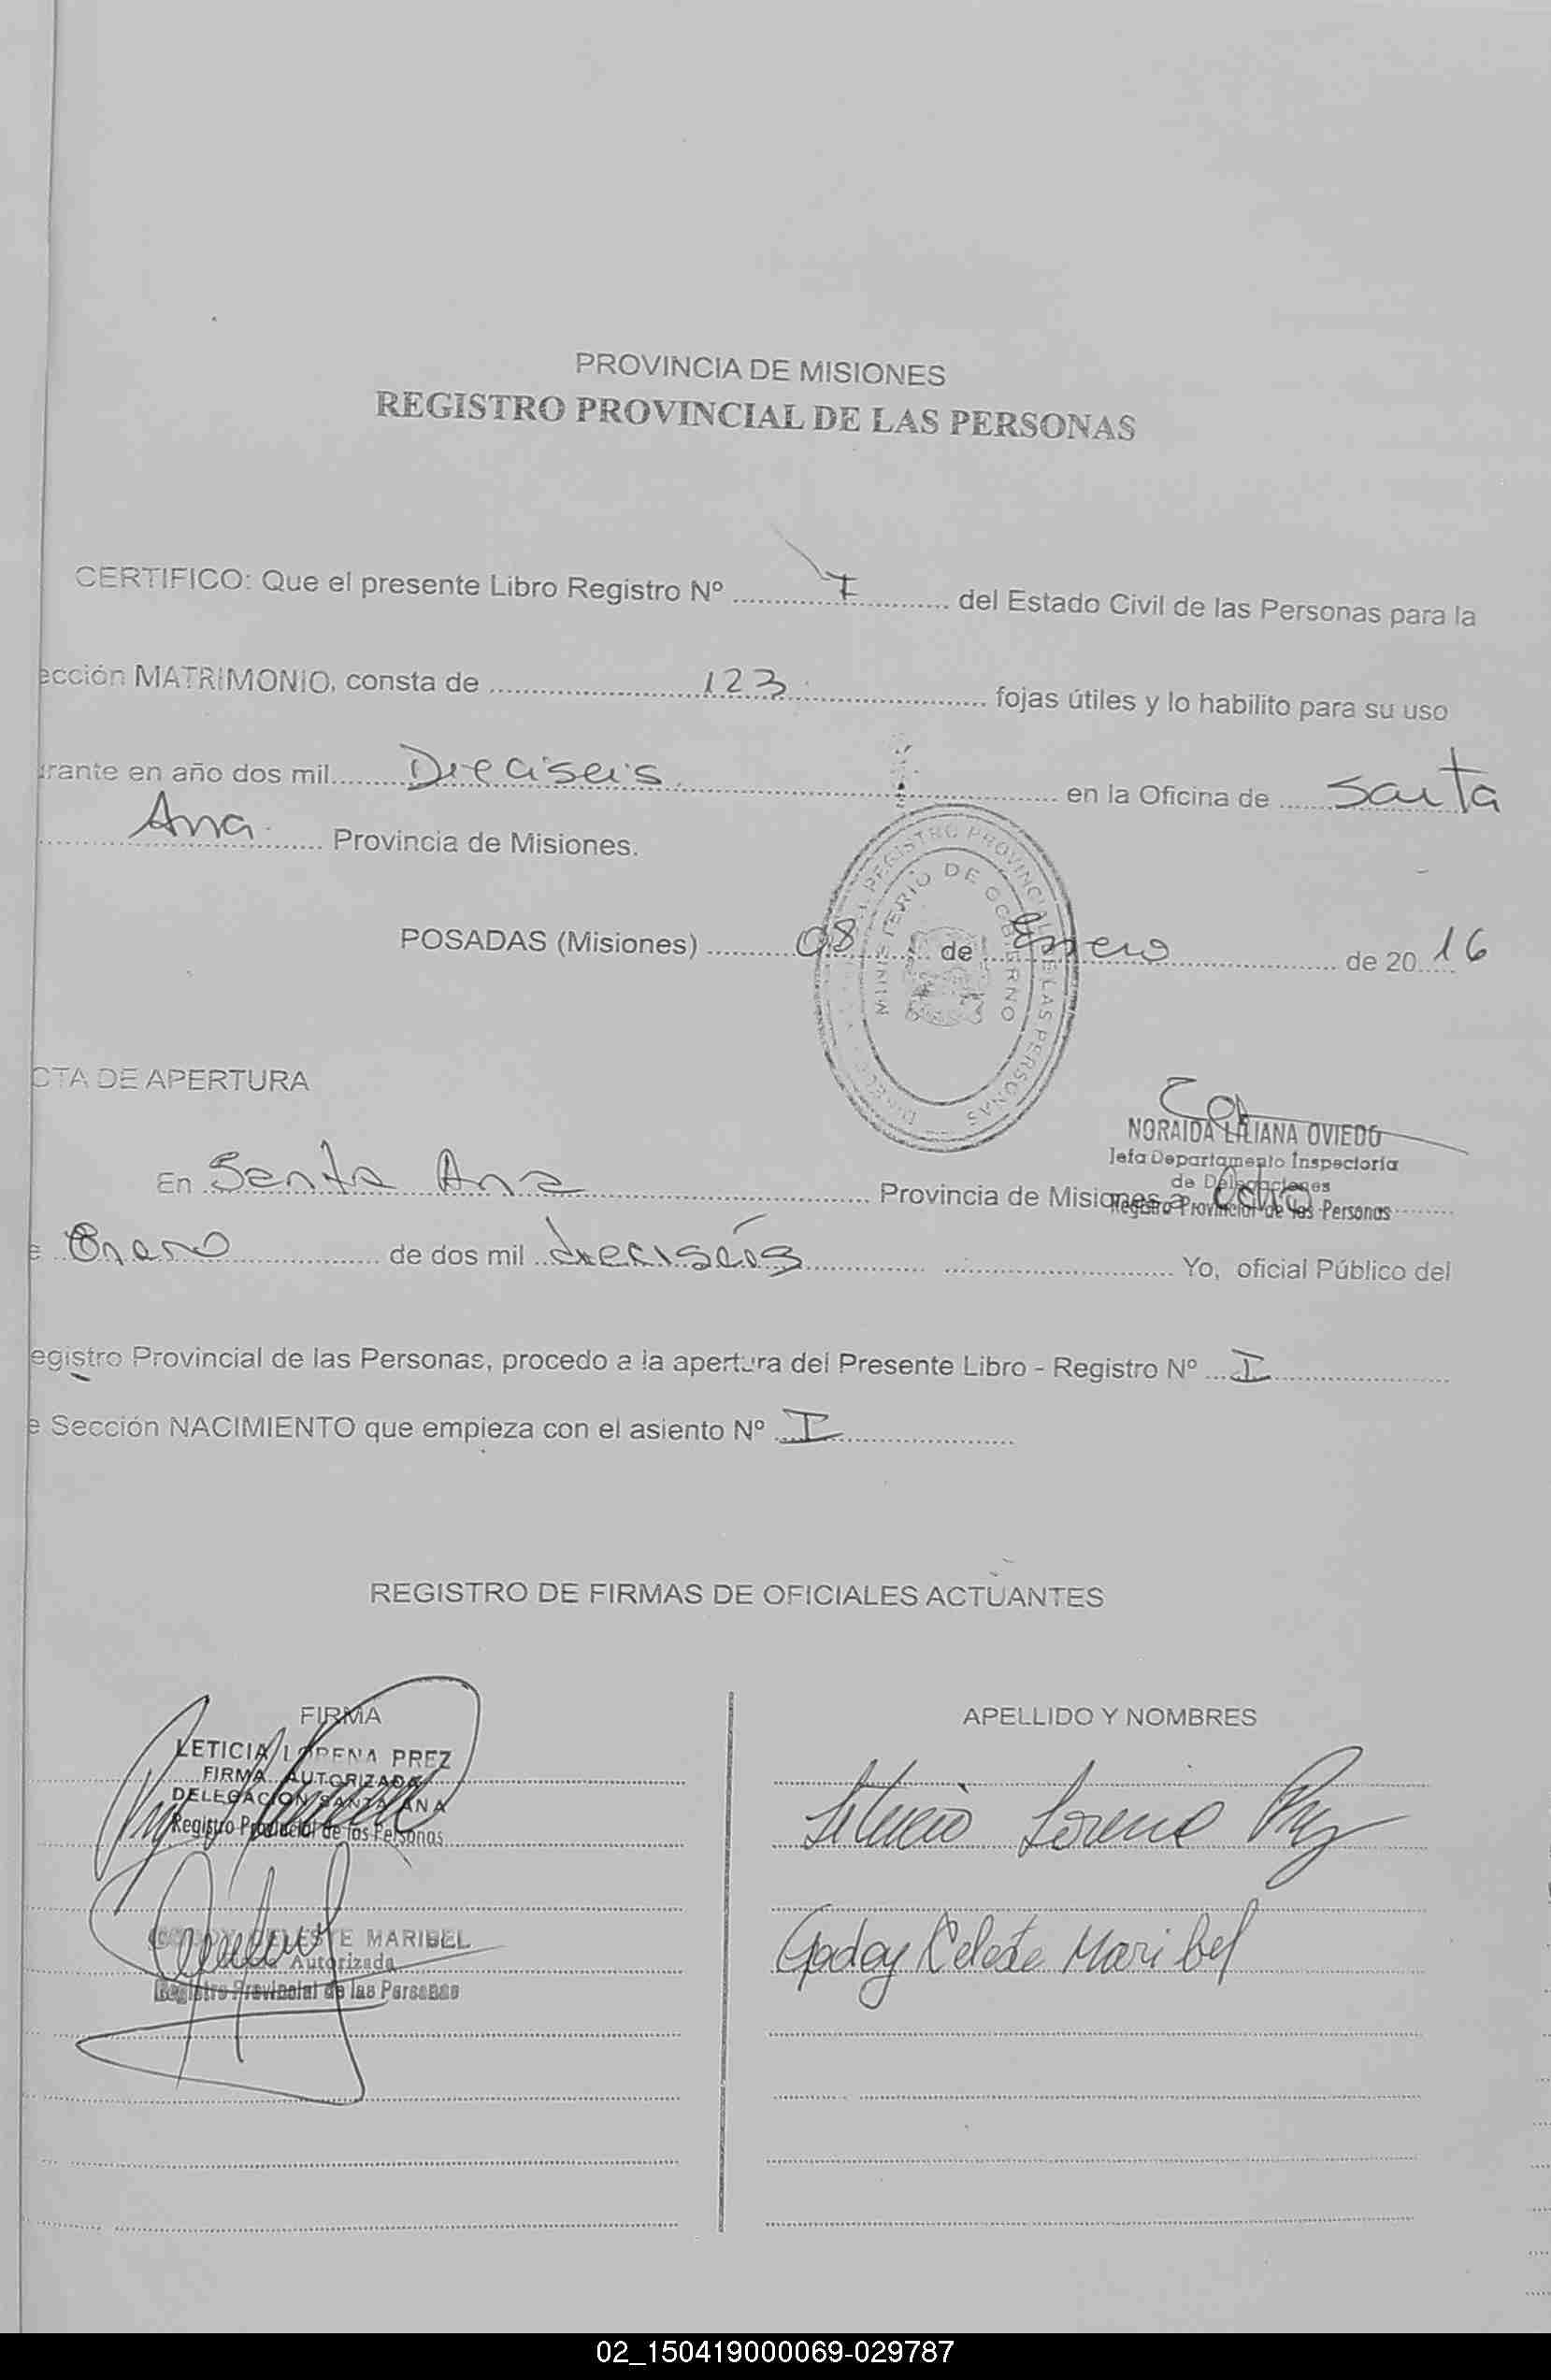 PROVINCIA DE MISIONES
REGISTRO PROVINCIAL DE LAS PERSONAS
CERTIFICO: Que el presente Libro Registro Nº del Estado Civil de las Personas para la
ección MATRIMONIO, consta de 123 fojas útiles y lo habilito para su uso
rante en año dos mil Dieciseis en la Oficina de Santa
Ana Provincia de Misiones.
REGISTRO PROVINCIAL DE LAS PERSONAS
MINISTERIO DE GOBIERNO
POSADAS (Misiones) 08 de Enero de 20 16
CTA DE APERTURA
NORAIDA LILIANA OVIEDO
Jefa Departamento Inspectoria
de Delegaciones
Registro Provincial de las Personas
En Santa Ana Provincia de Misiones a ocho
e Enero de dos mil dieciséis Yo, oficial Público del
egistro Provincial de las Personas, procedo a la apertura del Presente Libro - Registro Nº I
e Sección NACIMIENTO que empieza con el asiento Nº I
REGISTRO DE FIRMAS DE OFICIALES ACTUANTES
FIRMA APELLIDO Y NOMBRES
LETICIA LORENA PREZ
FIRMA AUTORIZADA
DELEGACION SANTA ANA
Registro Provincial de las Personas
Leticia Lorena Prez
CELESTE MARIBEL
Autorizada
Registro Provincial de las Personas
Godoy Celeste Maribel
02_150419000069-029787